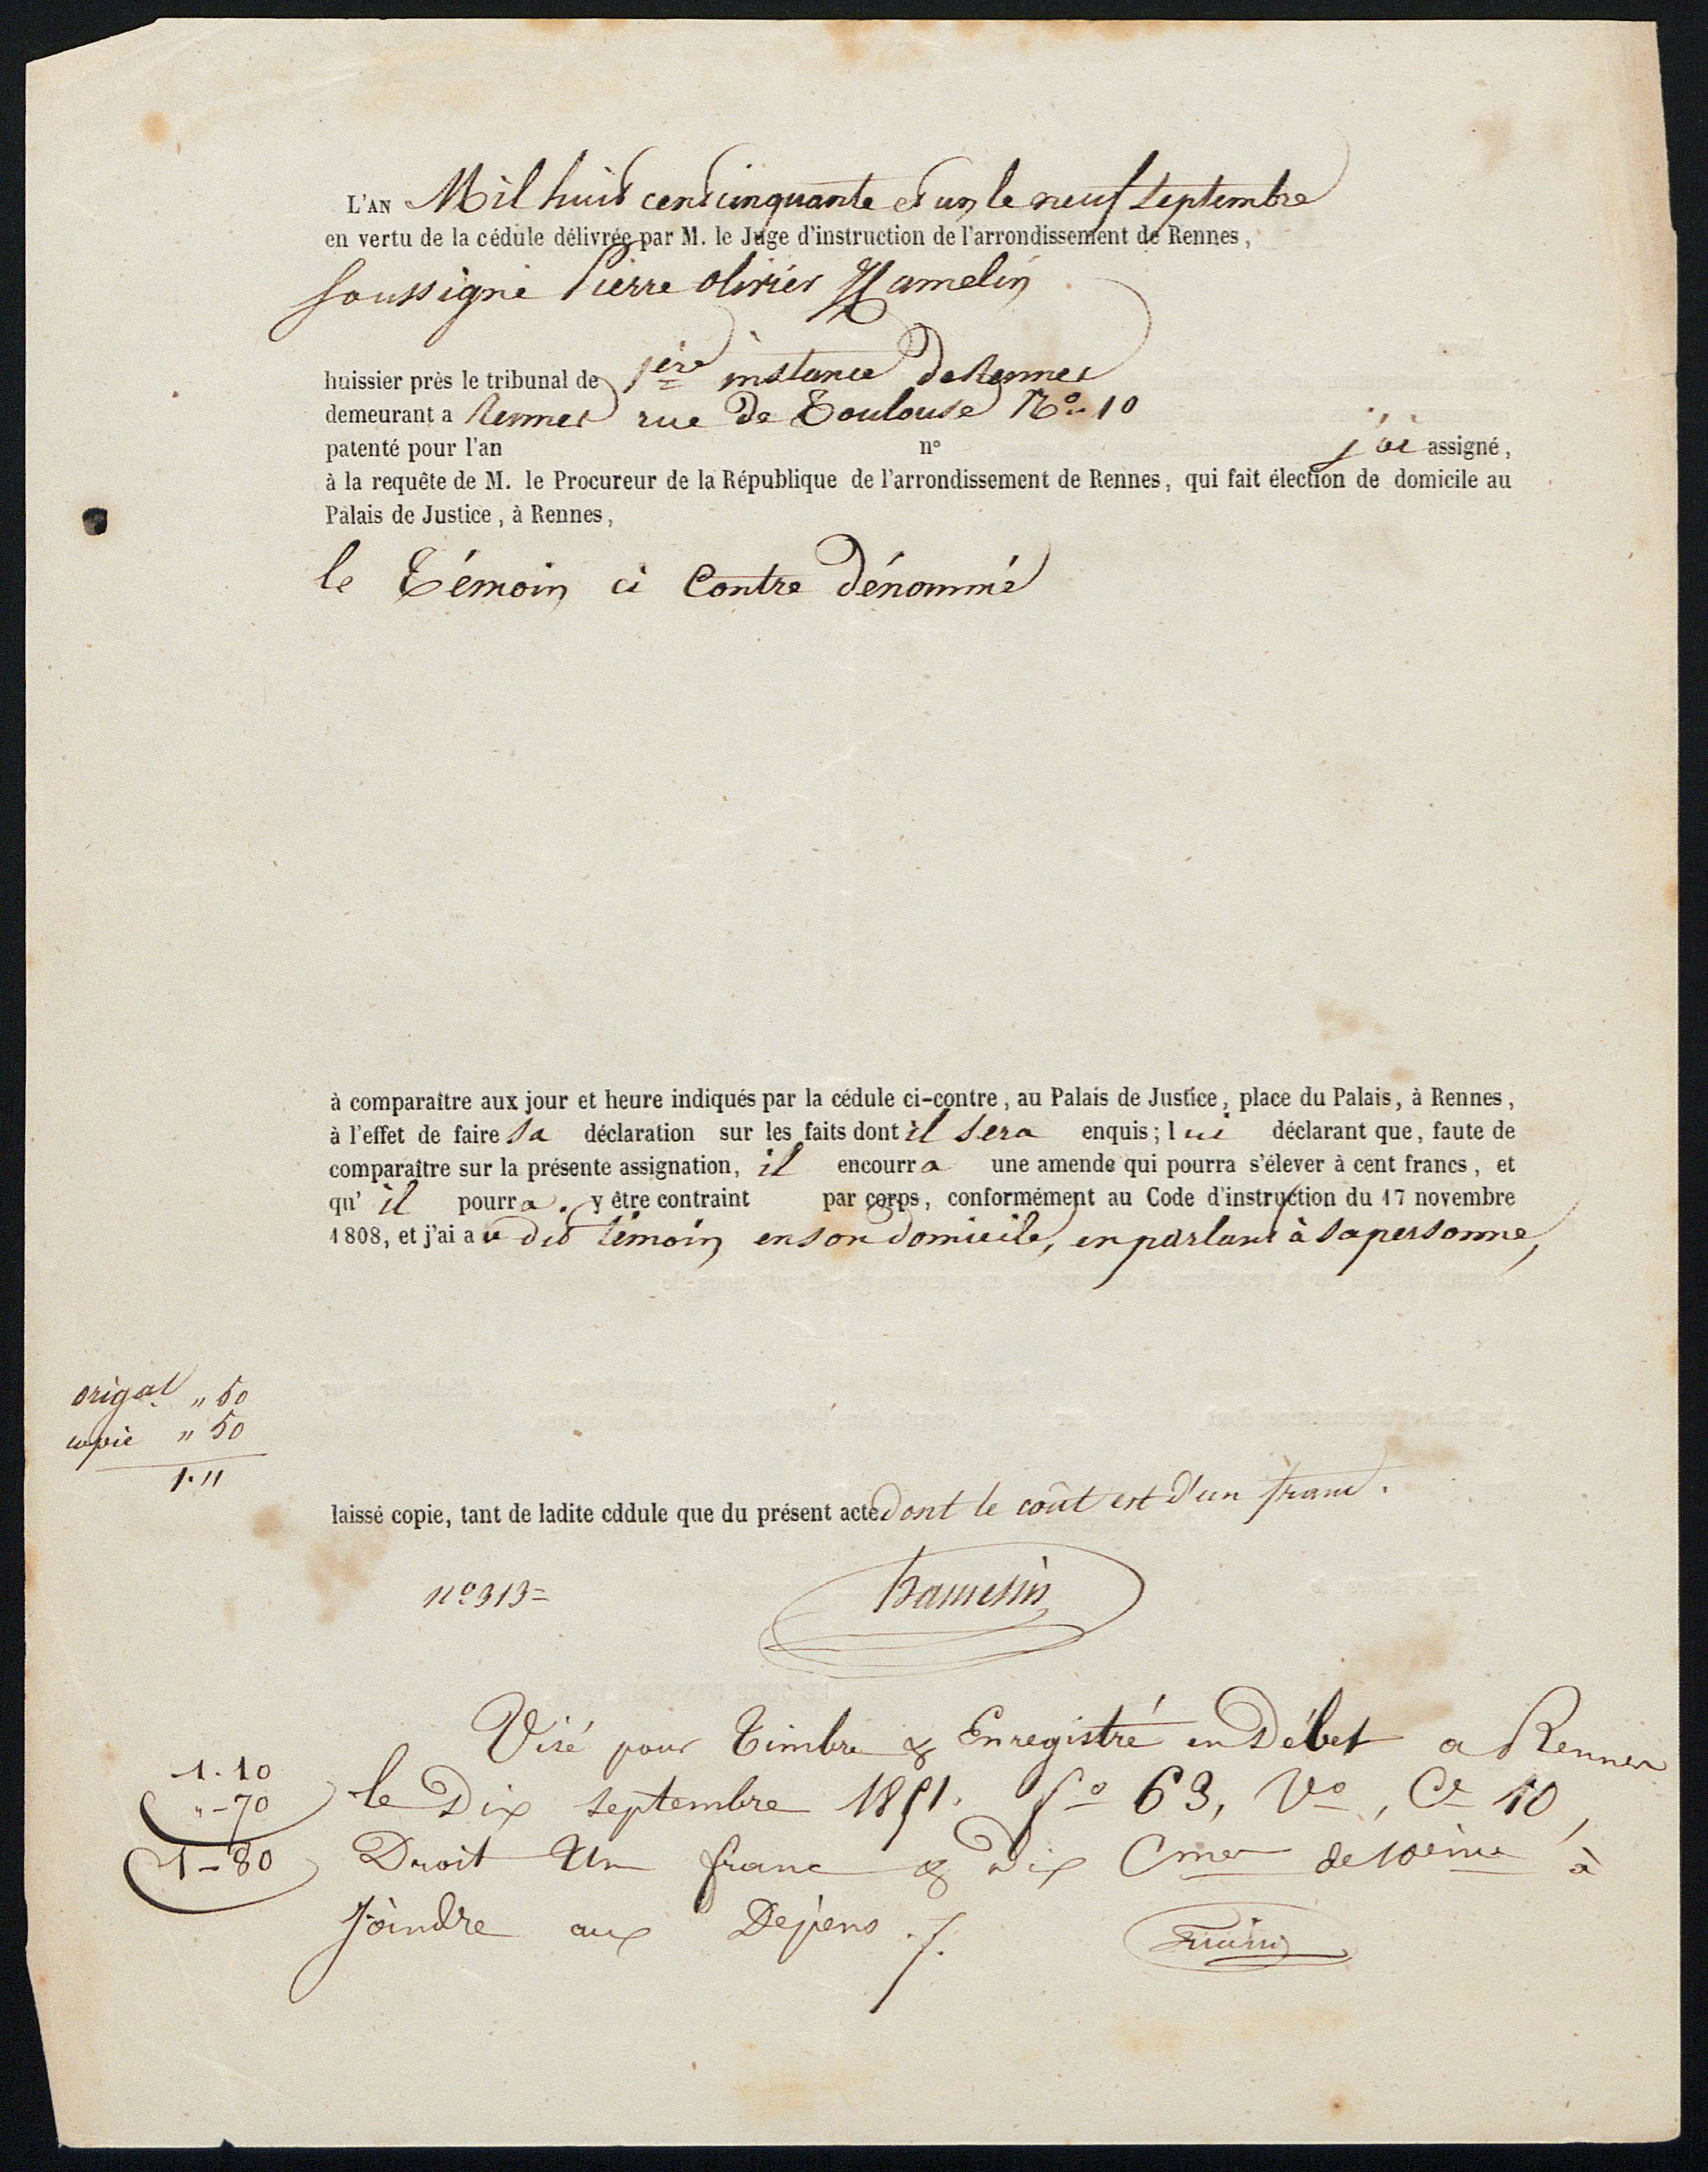 L'AN Mil huit cent cinquante et un le neuf Septembre
en vertu de la cédule délivrée par M. le Juge d'instruction de l'arrondissement de Rennes,
Soussigné Pierre olivier Hamelin
huissier près le tribunal de 1ère instance de Rennes
demeurant a Rennes rue de Toulouse No. 10
patenté pour l'an n° j'ai assigné,
à la requête de M. le Procureur de la République de l'arrondissement de Rennes, qui fait élection de domicile au
Palais de Justice, à Rennes,
le Témoin ci Contre dénommé
à comparaître aux jour et heure indiqués par la cédule ci-contre, au Palais de Justice, place du Palais, à Rennes,
à l'effet de faire sa déclaration sur les faits dont il sera enquis; lui déclarant que, faute de
comparaître sur la présente assignation, il encourra une amende qui pourra s'élever à cent francs, et
qu'il pourra. y être contraint par corps, conformément au Code d'instruction du 17 novembre
1808, et j'ai au dit témoin en son domicile, en parlant à sa personne,
origal. " 50
copie " 50
1. "
laissé copie, tant de ladite cddule que du présent acte dont le coût est d'un franc.
n° 313=
hamelin
Visé pour Timbre & Enregistré en Débet a Rennes
le Dix septembre 1851. f° 63, V°, Ce 10,
Droit Un franc & dix Cmes de 10ème à
Joindre aux Dépens ./.
1.10
"-70
1-80